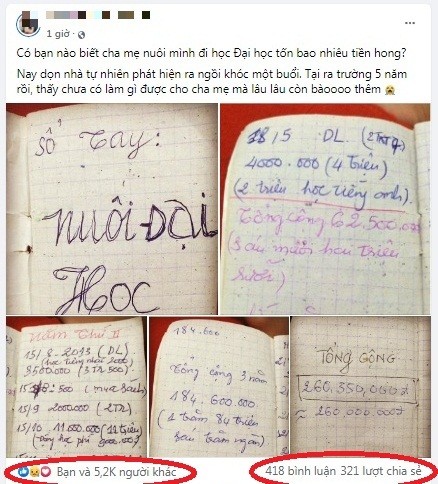 1 giờ ·
Có bạn nào biết cha mẹ nuôi mình đi học Đại học tốn bao nhiêu tiền hong?
Nay dọn nhà tự nhiên phát hiện ra ngồi khóc một buổi. Tại ra trường 5 năm
rồi, thấy chưa có làm gì được cho cha mẹ mà lâu lâu còn bàoooo thêm 😭
Sổ Tay:
NUÔI ĐẠI
HỌC
18/5 DL
4000.000 (4 triệu)
(2 triệu học tiếng anh).
Tổng cộng 62.500.000
(Sáu mươi hai triệu
rưỡi)
Năm Thứ II
15/8-2013 (DL)
8500000 (3TR 500)
500 (mua sách)
15/9 2000000 (2TR)
15/10 11.000.000 (11 triệu)
184.600
Tổng cộng 3 năm
184.600.000
(1 trăm 84 triệu
sáu trăm ngàn)
TỔNG CỘNG
260.350,000đ
≈ 260.000.000đ
Bạn và 5,2K người khác
418 bình luận 321 lượt chia sẻ